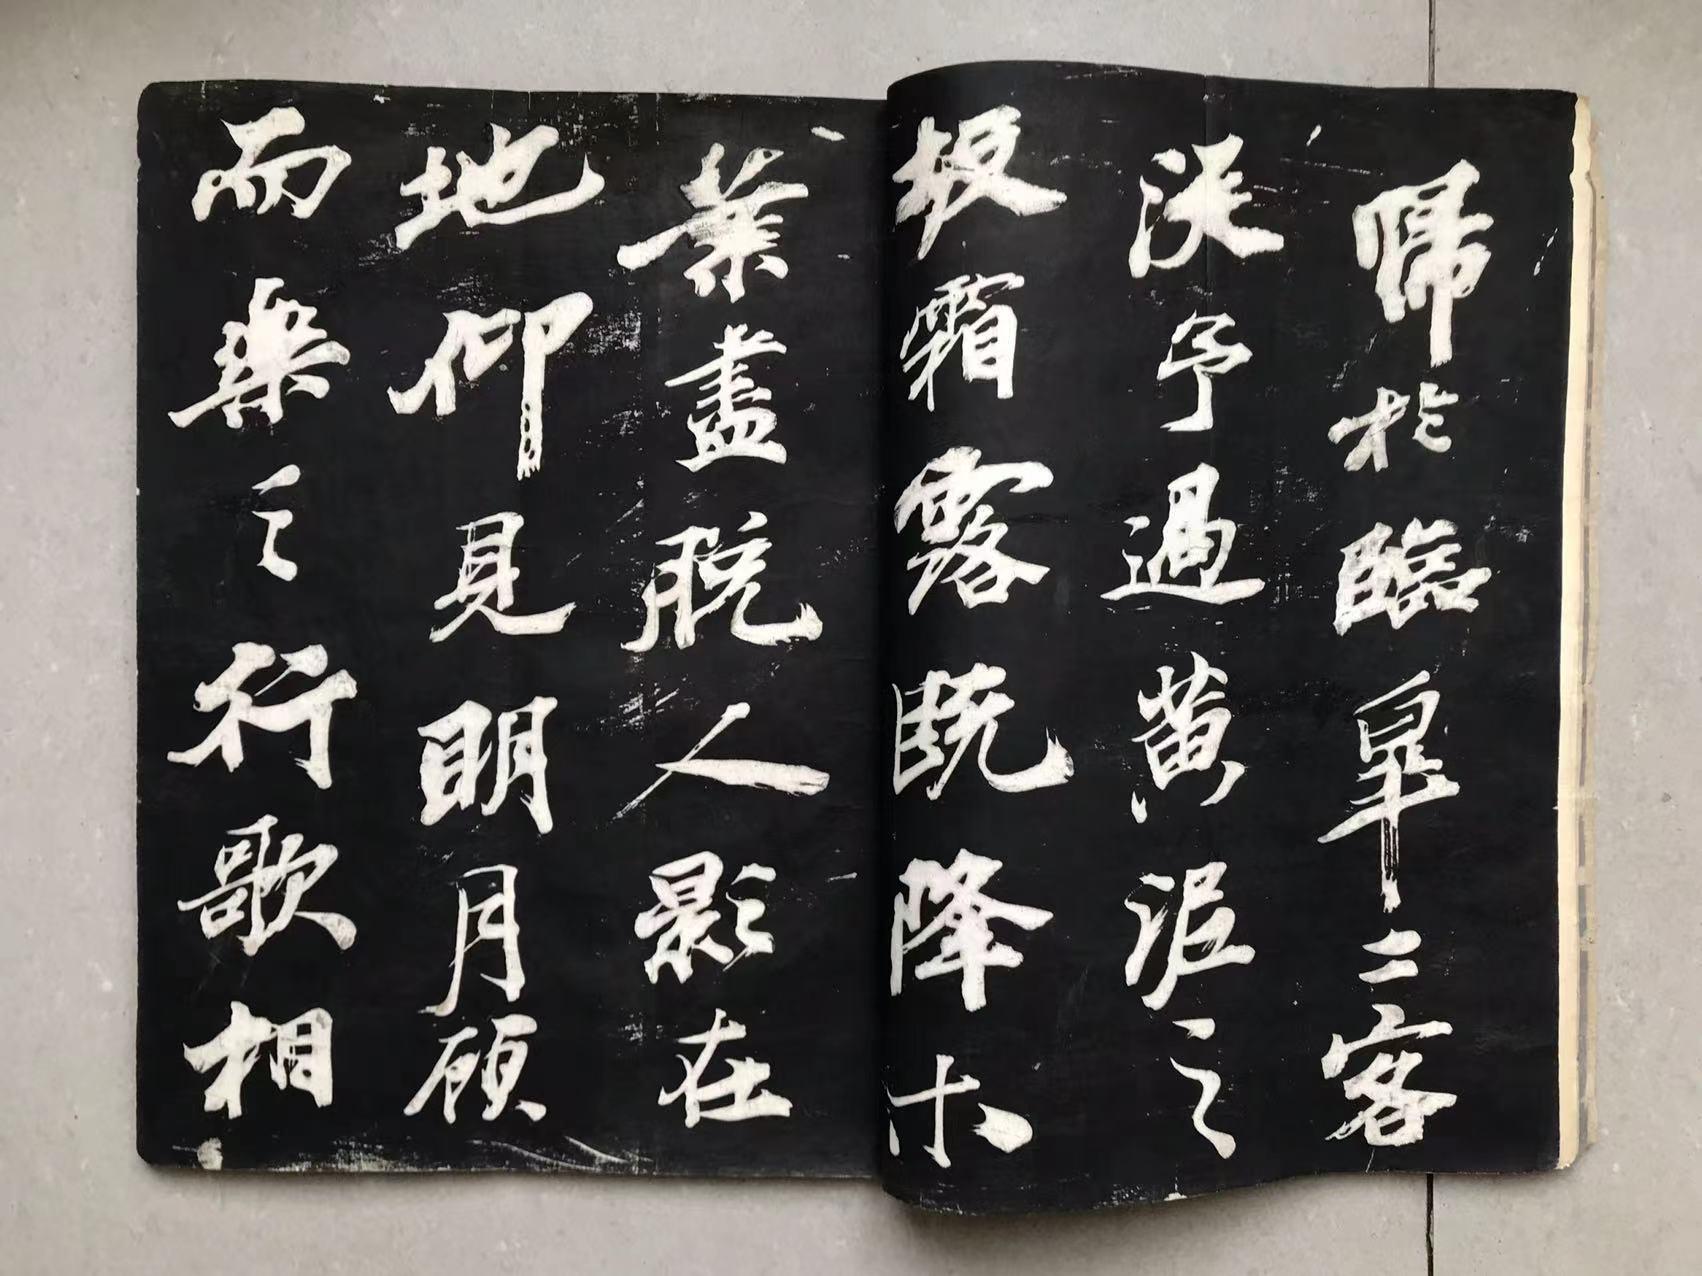 歸於臨皋二客
從予過黃泥之
坂霜露既降木
葉盡脫人影在
地仰見明月顧
而樂之行歌相